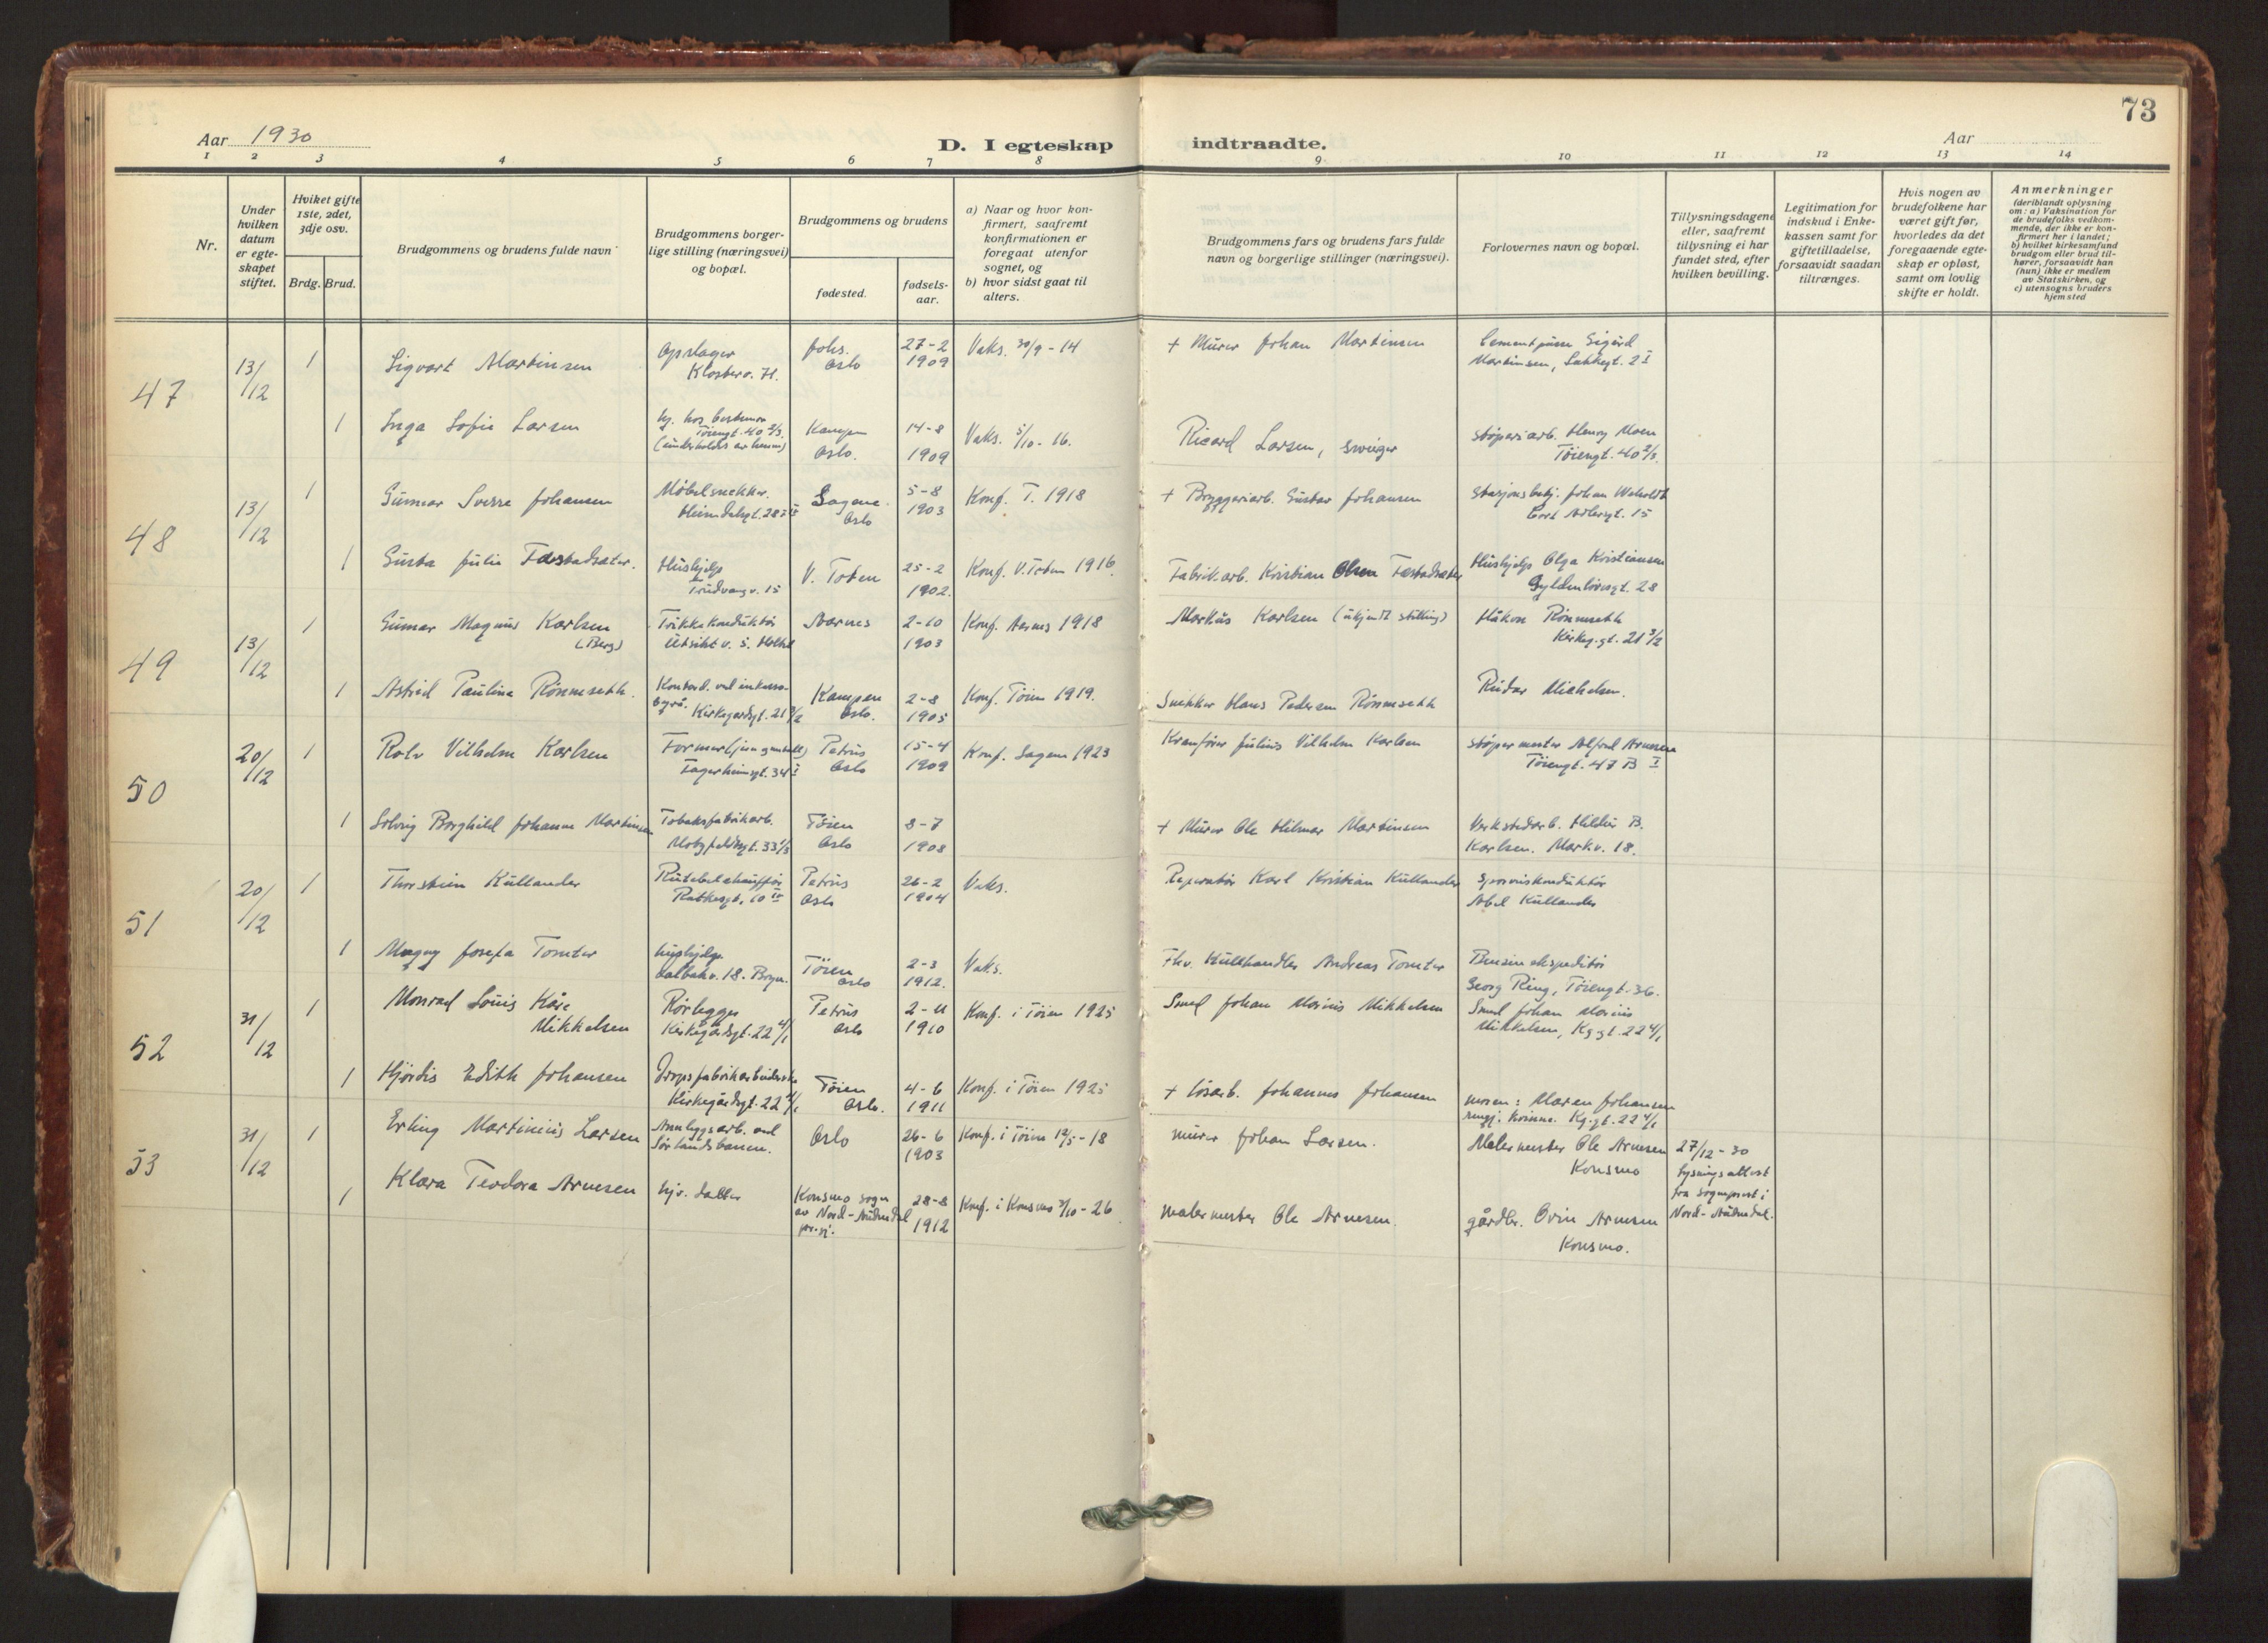 73
Aar 1930
D. I egteskap indtraadte.
Aar
1 2 3 4 5 6 7 8 9 10 11 12 13 14
Nr.
Under hvilken datum er egteskapet stiftet.
Hviket gifte 1ste, 2det, 3dje osv.
Brdg. Brud.
Brudgommens og brudens fulde navn
Brudgommens borgerlige stilling (næringsvei) og bopæl.
Brudgommens og brudens
fødested.
fødselsaar.
a) Naar og hvor konfirmert, saafremt konfirmationen er foregaat utenfor sognet, og
b) hvor sidst gaat til alters.
Brudgommens fars og brudens fars fulde navn og borgerlige stillinger (næringsvei).
Forlovernes navn og bopæl.
Tillysningsdagene eller, saafremt tillysning ei har fundet sted, efter hvilken bevilling.
Legitimation for indskud i Enkekassen samt for giftetilladelse, forsaavidt saadan tiltrænges.
Hvis nogen av brudefolkene har været gift før, hvorledes da det foregaaende egteskap er opløst, samt om lovlig skifte er holdt.
Anmerkninger (deriblandt oplysning om: a) Vaksination for de brudefolks vedkommende, der ikke er konfirmert her i landet; b) hvilket kirkesamfund brudgom eller brud tilhører, forsaavidt han (hun) ikke er medlem av Statskirken, og c) utensogns bruders hjemsted
47 13/12 1 Sigvart Martinsen Klosterv. 71. Johs. Oslo 27-2 1909 Vaks. 30/9-14 + Murer Johan Martinsen Sigurd Martinsen, 2 I
1 Inga Sofie Larsen Tøiengt. 40 2/3. Kampen Oslo. 14-8 1909 Vaks. 5/10-16. Ricard Larsen, støperiarb. Henry Moen Tøiengt. 40 2/3.
48 13/12 1 Gunnar Sverre Johansen Møbelsnekker. Sagene Oslo 5-8 1903 Konf. T. 1918 + Bryggeriarb. Gustav Johansen Johan Cort Adlersgt. 15
1 Gusta Julie Hushjelp Trudvangv. 15 V. Toten 25-2 1902. Konf. V. Toten 1916. Fabrik.arb. Kristian Olsen Hushjelp Olga Kristiansen Gyldenløvesgt. 28
49 13/12 1 Gunnar Magnus Karlsen (Berg) Trikkekonduktør Aarnes 2-10 1903 Konf. Aarnes 1918 Markus Karlsen (ukjendt stilling) Håkon Rønnseth Kirkeg.gt. 21 3/2
1 Astrid Paulina Rønnseth. Kirkegardsgt. 21 3/2 Kampen Oslo. 2-8 1905 Konf. Tøien 1919. Snekker Hans Pedersen Rønnseth Reidar Michelsen.
50 20/12 1 Rolv Vilhelm Karlsen Fagerheimgt. 34 I Petrus Oslo 15-4 1909 Konf. Sagene 1923 Kranfører Julius Vilhelm Karlsen støpermester Alfred Arnesen Tøiengt. 47 B I
1 Solveig Borghild Johanne Martinsen Tobaksfabrikarb. Motzfeldtsgt. 33 Tøien Oslo 8-7 1908 + Murer Ole Hilmar Martinsen Verkstedarb. Hildur B. Karlsen. Markv. 18.
51 20/12 1 Thorstein Kullander Rutebilchauffør Rathkesgt. 10 IV Petrus Oslo 26-2 1904 Vaks. Reparatør Karl Kristian Kullander Sporveiskonduktør Abel Kullander
1 Magny Josefa Tomter hushjelp Kalbakv. 18. Bryn. Tøien Oslo 2-3 1912. Vaks. Fhv. Kullhandler Andreas Tomter Bensinekspeditør Georg Ring, Tøiengt. 36.
52 31/12 1 Monrad Louis Kåre Mikkelsen Rørlegger Kirkegårdsgt. 22 4/1 Petrus Oslo 2-11 1910 Konf. i Tøien 1925 Smed Johan Marius Mikkelsen Smed Johan Marius Mikkelsen, Kg.gt. 22 4/1
1 Hjørdis Edith Johansen Dropsfabrikarbeiderske Kirkegårdsgt. 22 4/1 Tøien Oslo. 4-6 1911 Konf. i Tøien 1925 + løsarb. Johannes Johansen moren: Maren Johansen rengj. kvinne. Kg.gt. 22 4/1
53 31/12 1 Erling Martinius Larsen Anleggsarb. ved Sørlandsbanen. Oslo 26-6 1903 Konf. i Tøien 12/5-18 murer Johan Larsen. Malermester Ole Arnesen Konsmo 27/12-30 lysningsattest fra sogneprest i Nord-Audnedal.
1 Klara Teodora Arnesen hjv. datter Konsmo sogn av Nord-Audnedal pr.gj. 28-8 1912 Konf. i Konsmo 3/10-26 malermester Ole Arnesen. gårdbr. Arnesen Konsmo.